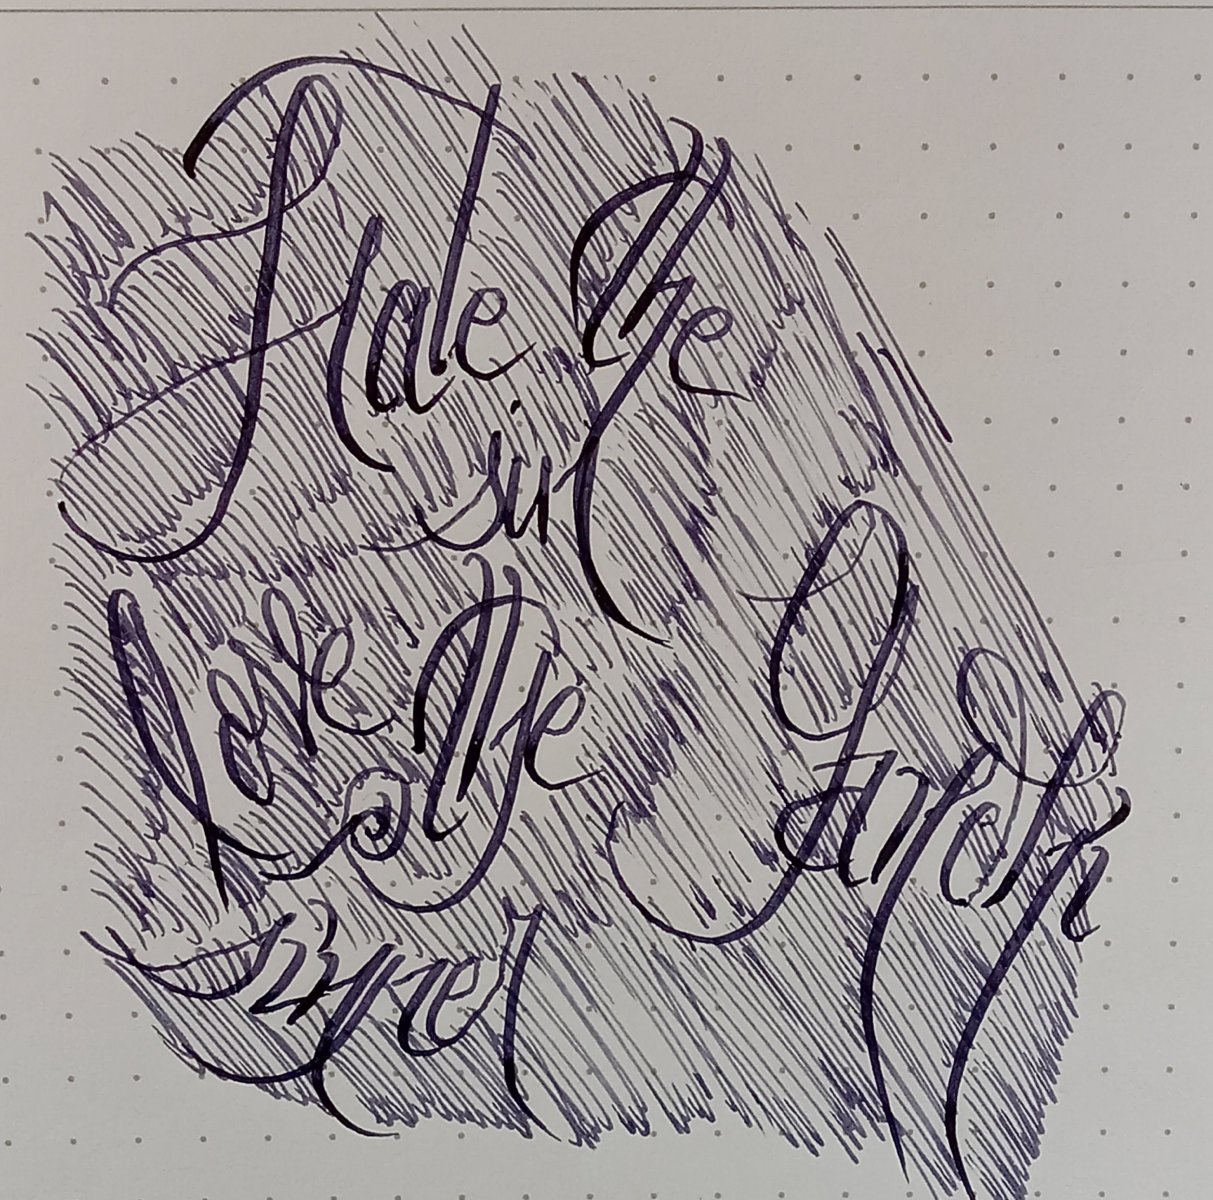 Hate the
sin
Love the
sinner
Gandhi